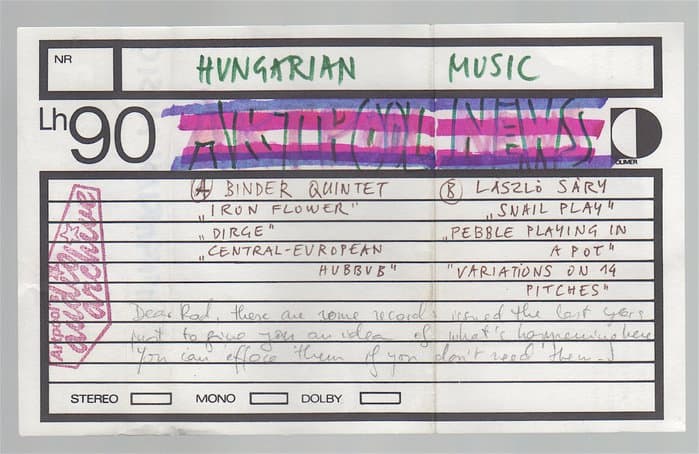 NR
HUNGARIAN MUSIC
Lh 90
ARTPOOL NEWS
OLIMER
Ⓐ BINDER QUINTET
„IRON FLOWER"
„DIRGE"
„CENTRAL-EUROPEAN
HUBBUB"
Ⓑ LÁSZLÓ SÁRY
„SNAIL PLAY"
„PEBBLE PLAYING IN
A POT"
"VARIATIONS ON 14
PITCHES"
Artpool's
audio
archive
Dear Rod, there are some records issued the last years
just to give you an idea of what's happening here
You can efface them if you don't need them
STEREO MONO DOLBY